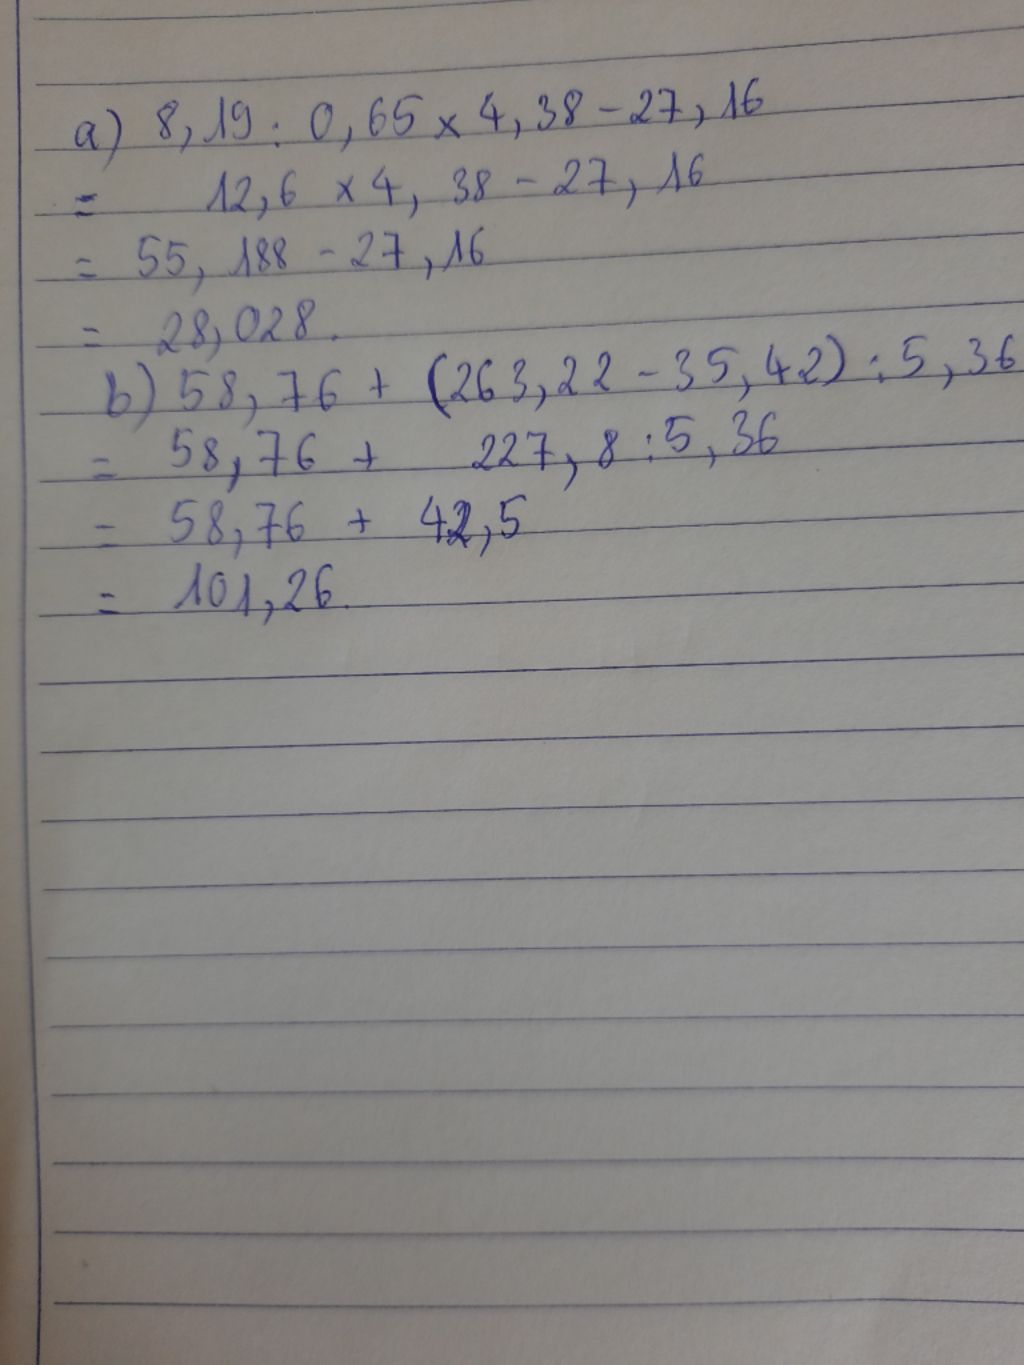 a) 8,19 : 0,65 x 4,38 - 27,16
= 12,6 x 4,38 - 27,16
= 55,188 - 27,16
= 28,028.
b) 58,76 + (263,22 - 35,42) : 5,36
= 58,76 + 227,8 : 5,36
= 58,76 + 42,5
= 101,26.